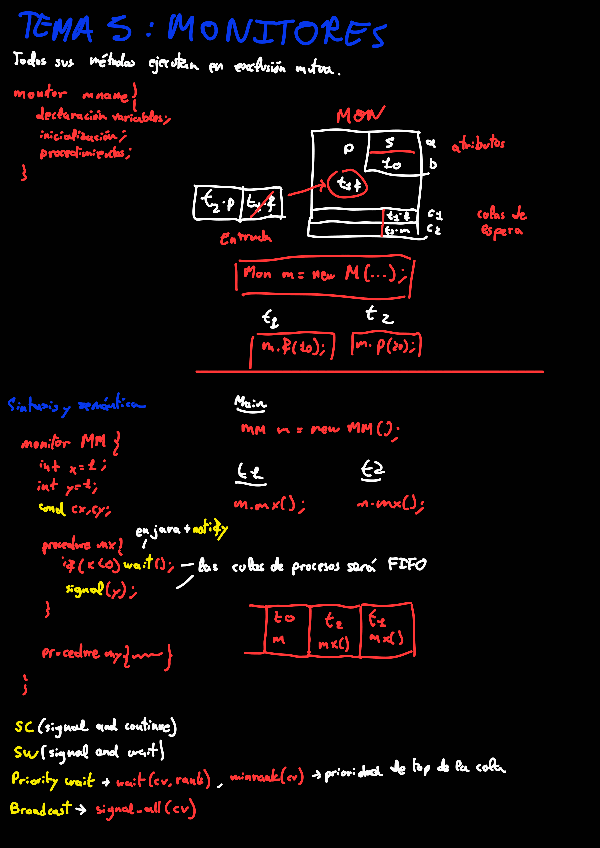 TEMA 5: MONITORES
Todos sus métodos ejecutan en exclusión mutua.
monitor mname{
declaración variables;
inicialización;
procedimientos;
}
MON
P
5
a
10
b
atributos
t1.f
t2.P
t1.f
Entrada
c1
c2
colas de
espera
Mon m = new M(...);
t1
t2
m.f(10);
m.p(20);
Sintaxis y semántica
monitor MM {
int x=1;
int y=1;
cond cx,cy;
en java → notify
procedure mx{
if(x<0) wait(); — las colas de procesos será FIFO
signal(y);
}
procedure my{ }
}
Main
MM m = new MM();
t1
t2
m.mx();
m.mx();
t0
m
t2
mx()
t1
mx()
SC (signal and continue)
SW (signal and wait)
Priority wait → wait(cv, rank), minrank(cv) → prioridad de top de la cola
Broadcast → signal_all(cv)